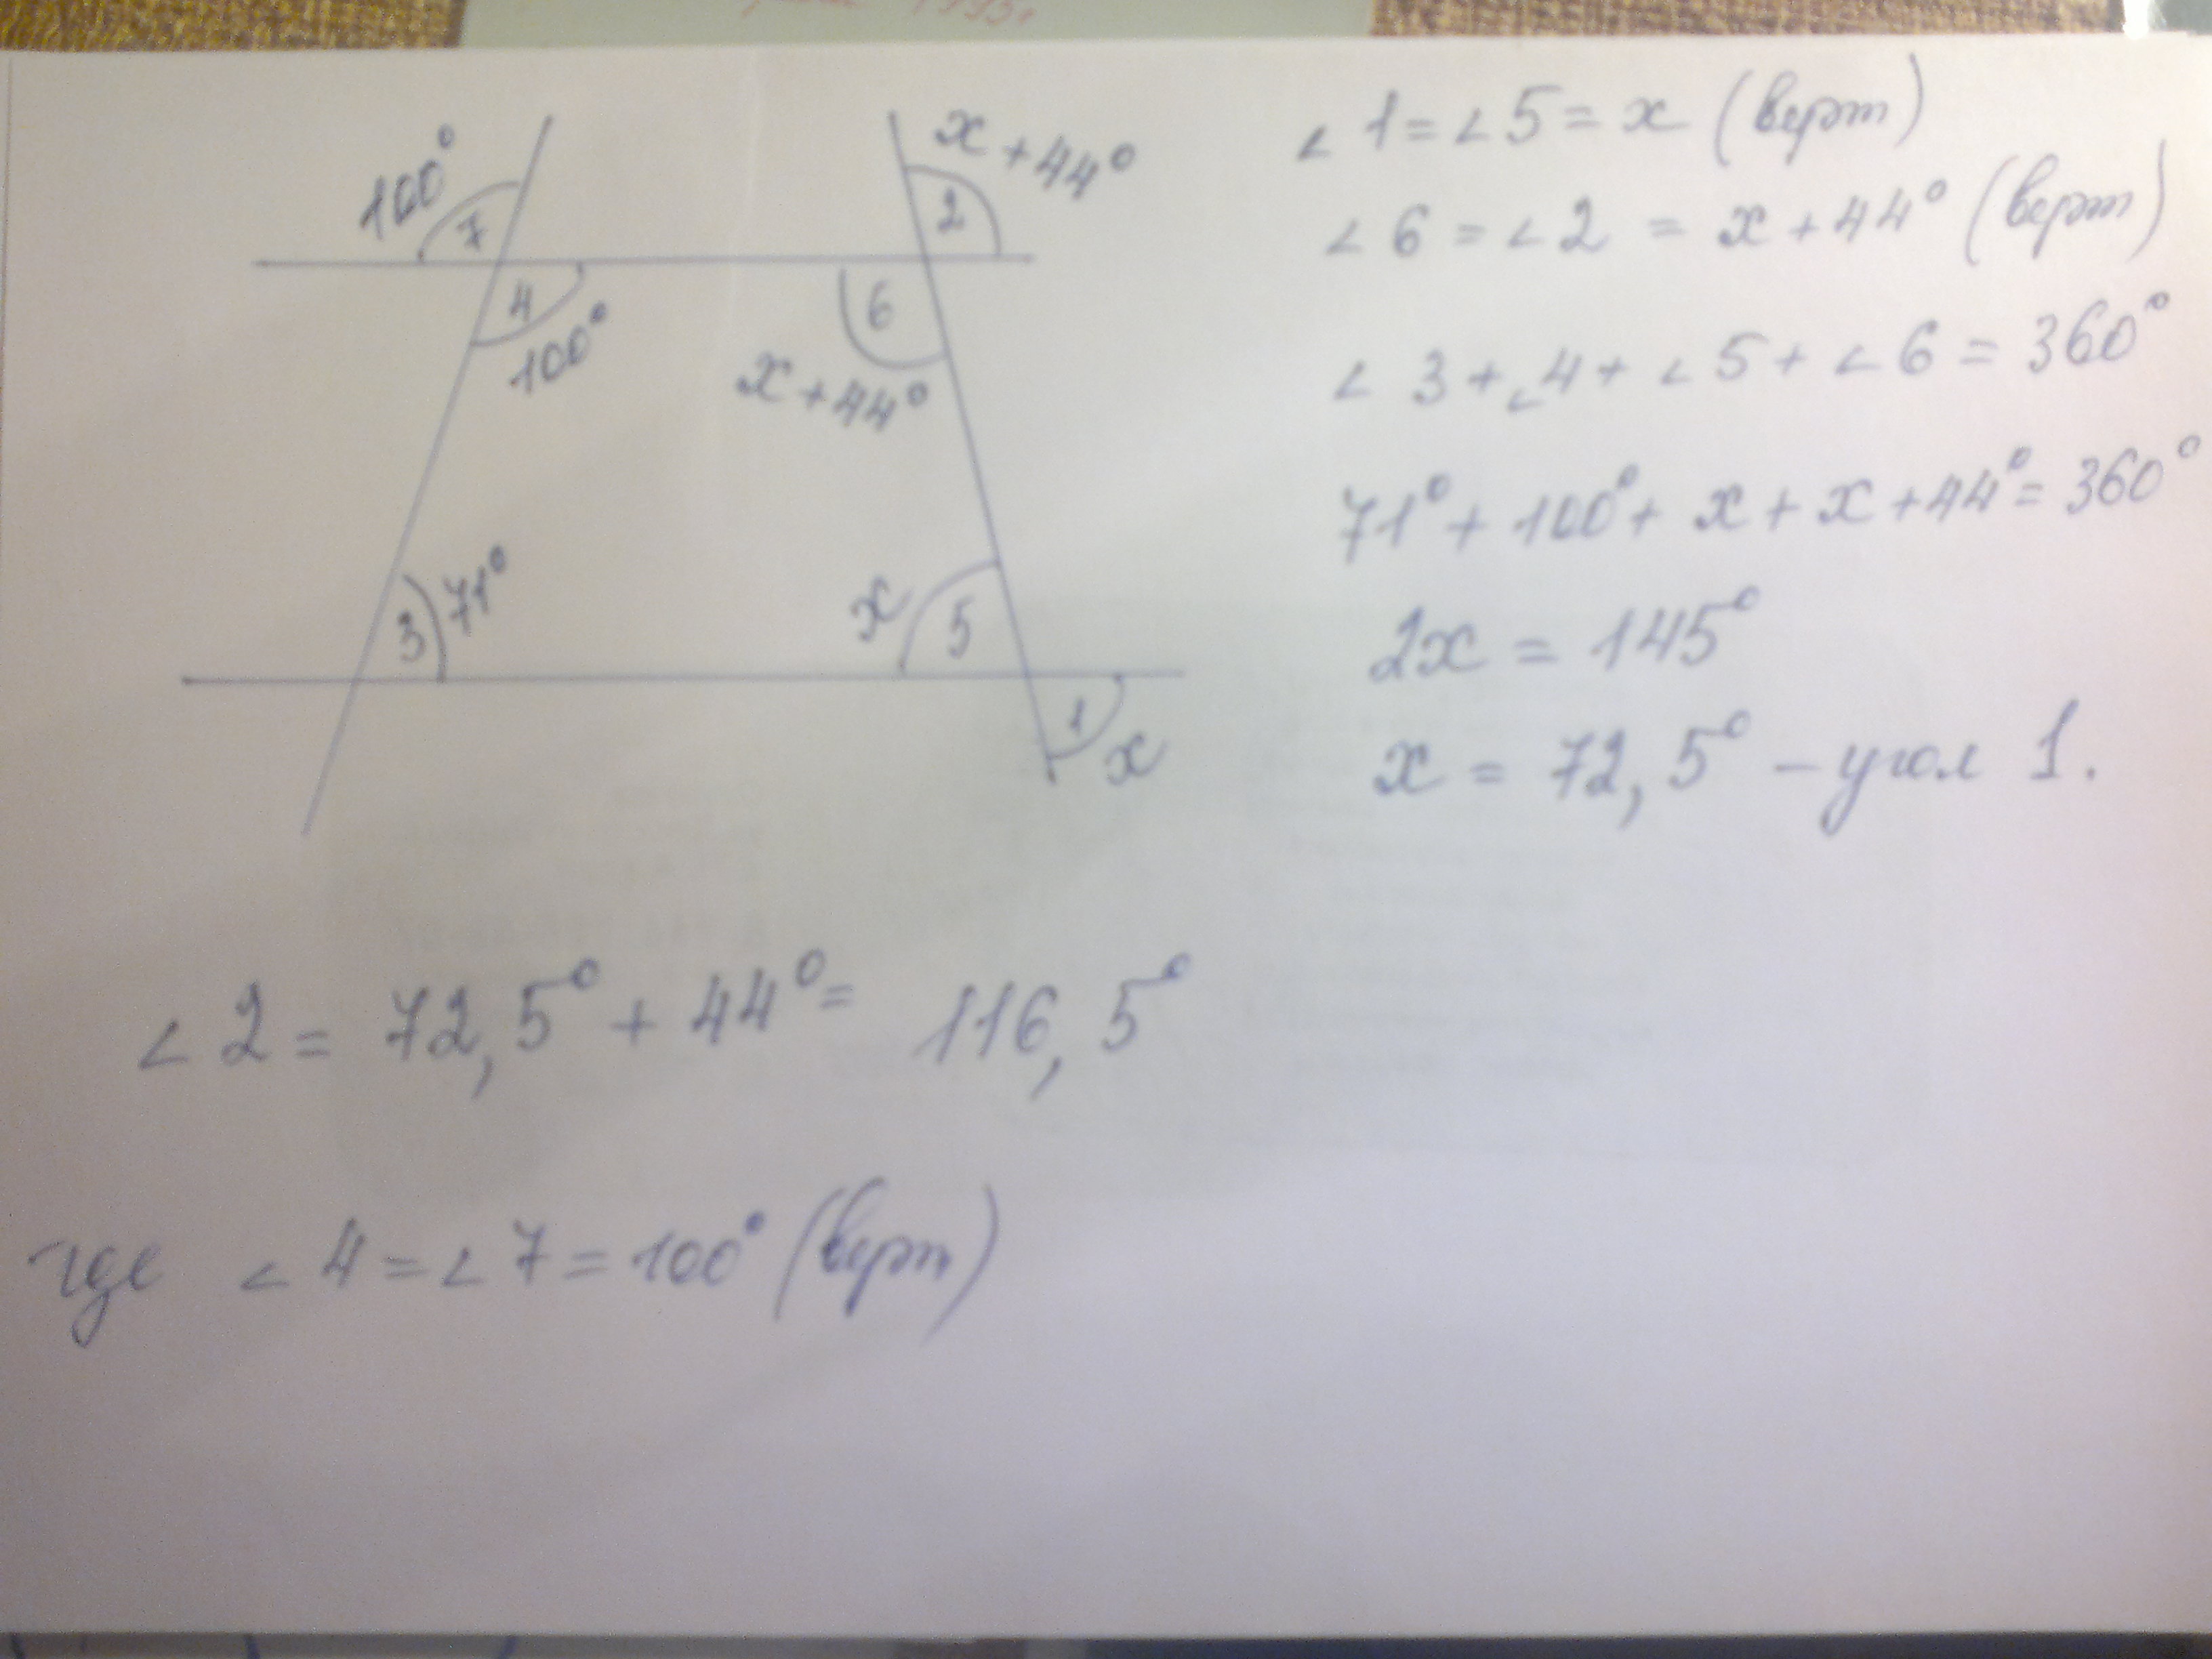 1993г
100°
7
x + 44°
2
4
100°
6
x + 44°
3
71°
x
5
1
x
∠ 1 = ∠ 5 = x (верт)
∠ 6 = ∠ 2 = x + 44° (верт)
∠ 3 + ∠ 4 + ∠ 5 + ∠ 6 = 360°
71° + 100° + x + x + 44° = 360°
2x = 145°
x = 72,5° – угол 1.
∠ 2 = 72,5° + 44° = 116,5°
где ∠ 4 = ∠ 7 = 100° (верт)